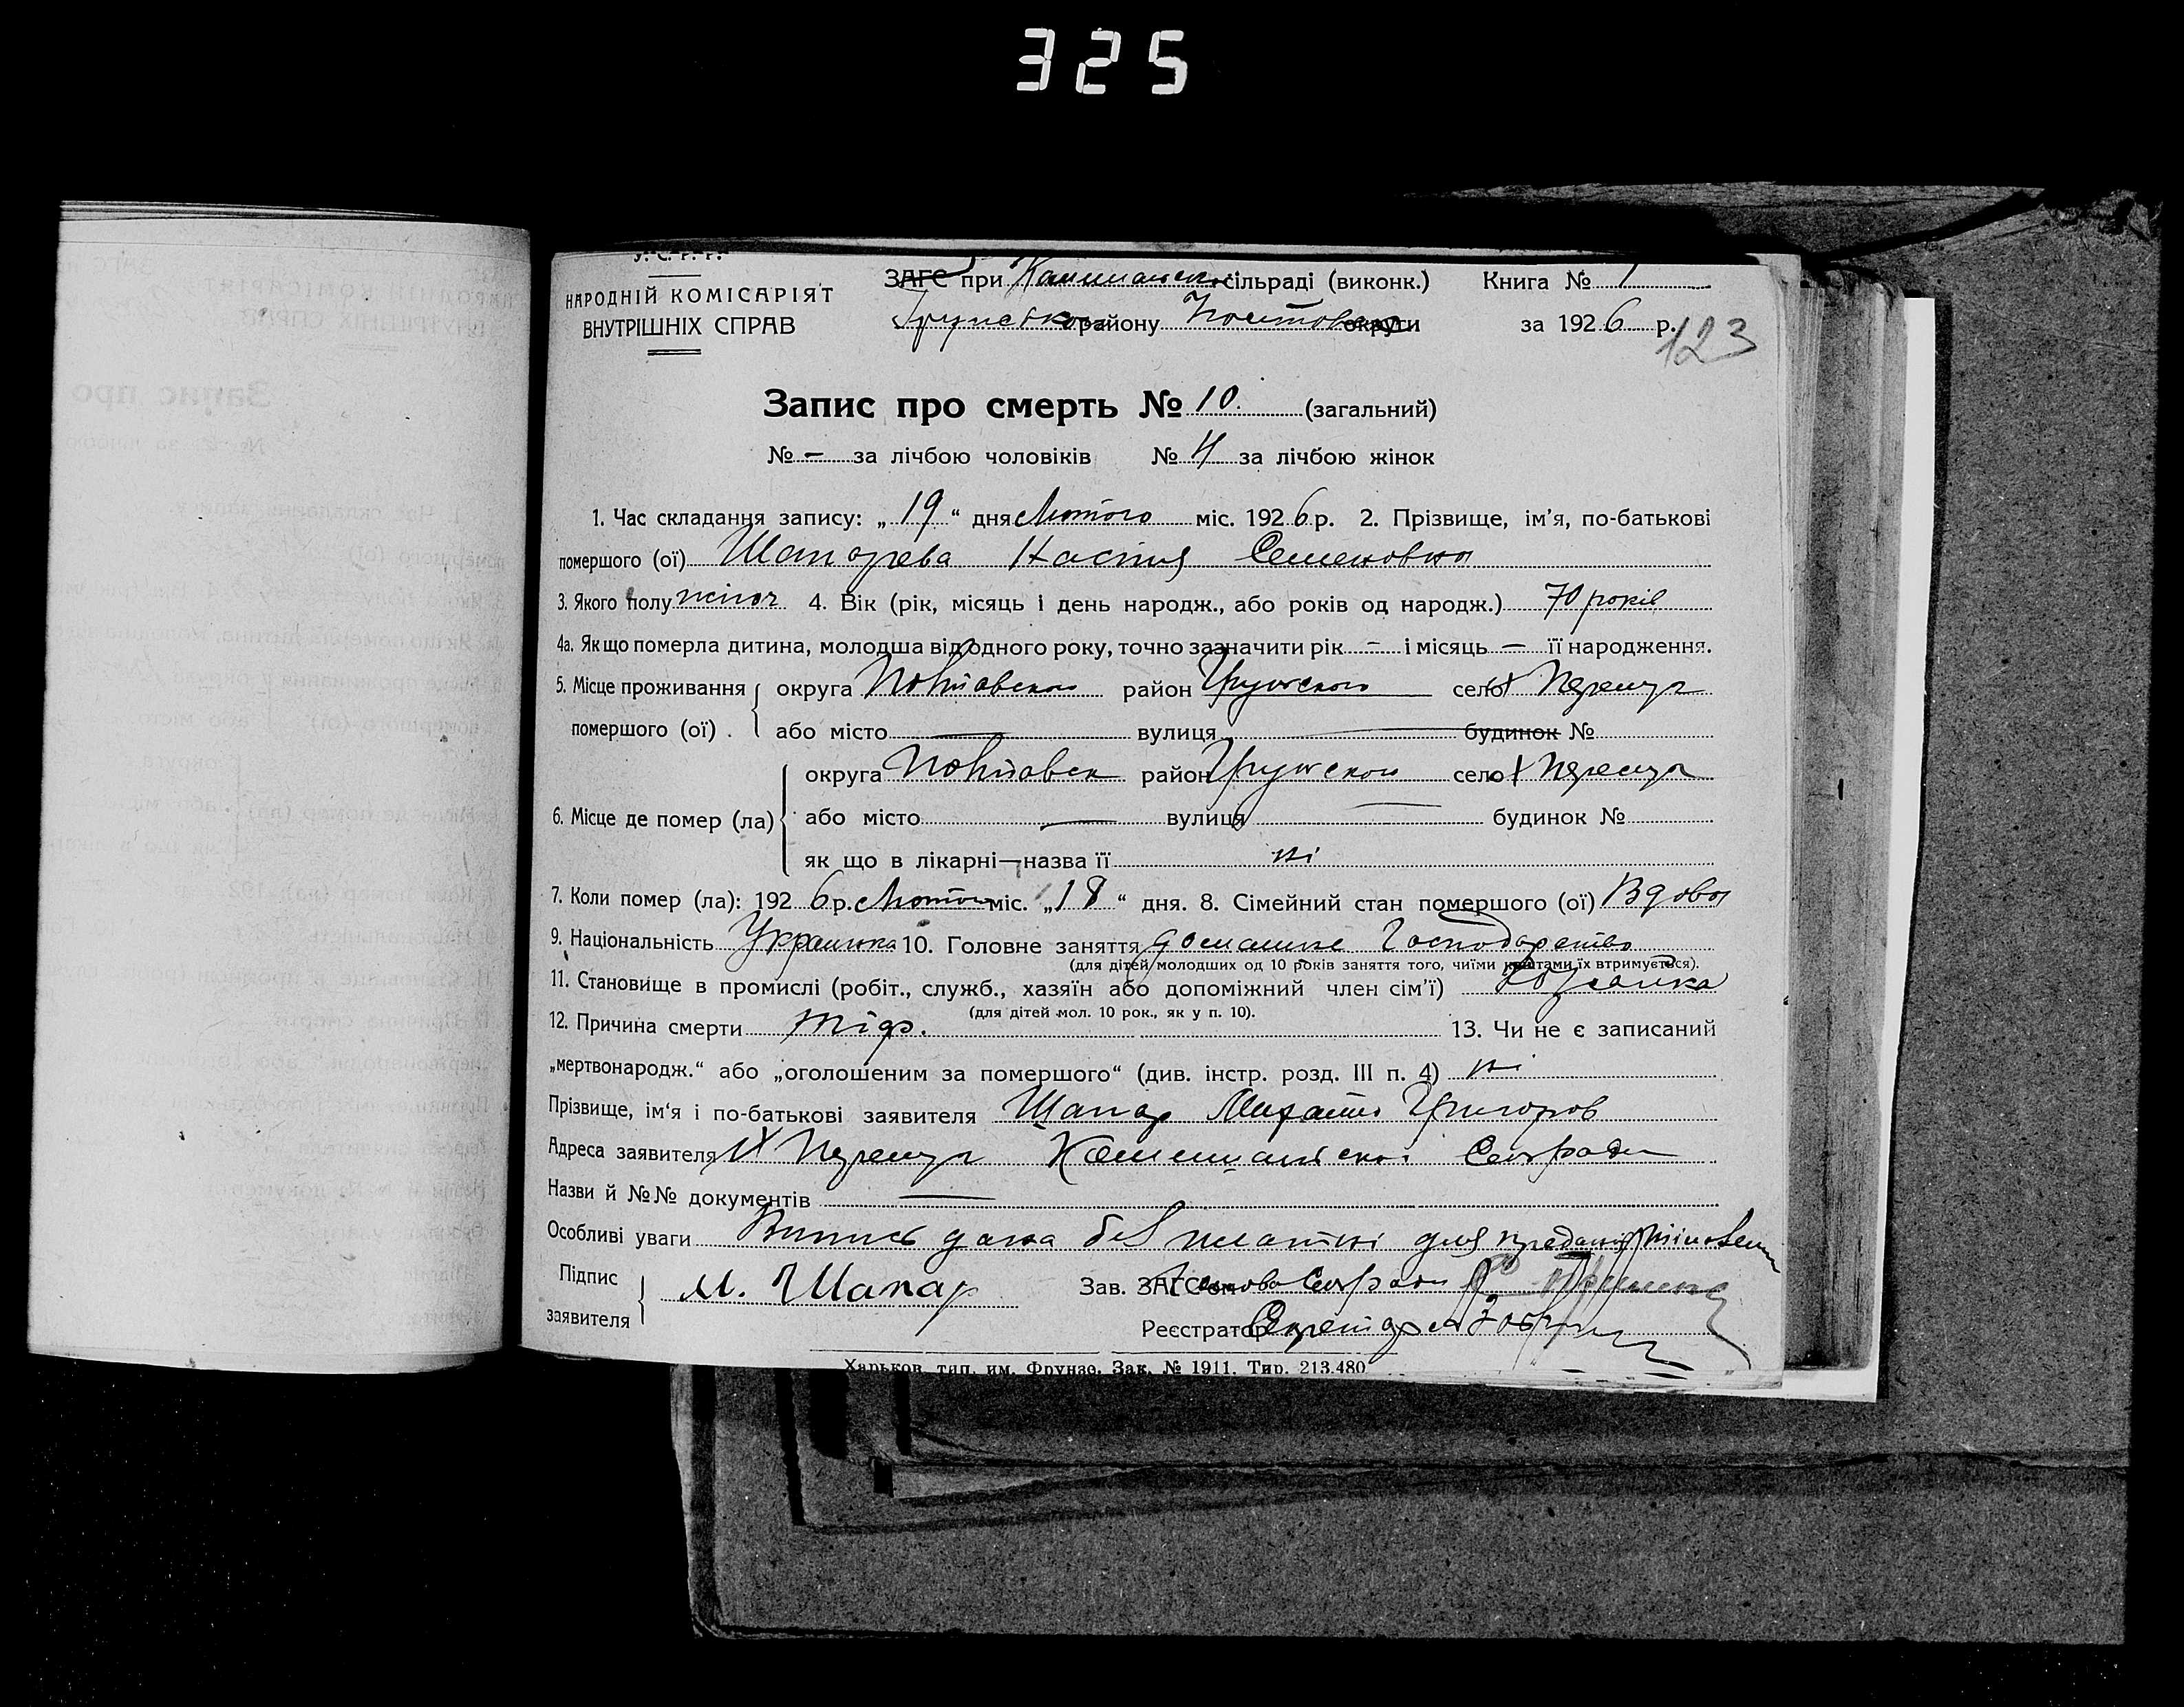 325
У. С. Р. Р.
НАРОДНІЙ КОМІСАРІЯТ
ВНУТРІШНІХ СПРАВ
ЗАГС при сільраді (виконк.) Книга № 1
району округи за 1926 р.
123
Запис про смерть № 10. (загальний)
№ — за лічбою чоловіків № 4 за лічбою жінок
1. Час складання запису: „19“ дня Лютого міс. 1926 р. 2. Прізвище, ім'я, по-батькові
помершого (ої) Шапарева Настя Семеновна
3. Якого полу жіноч 4. Вік (рік, місяць і день народж., або років од народж.) 70 років
4а. Якщо померла дитина, молодша від одного року, точно зазначити рік — і місяць — її народження.
5. Місце проживання округа Полтавської район Грунського село х
помершого (ої). або місто — вулиця — будинок №
округа Полтавськ район Грунського село х
6. Місце де помер (ла) або місто — вулиця — будинок №
як що в лікарні—назва її ні
7. Коли помер (ла): 1926 р. Лютого міс. „18“ дня. 8. Сімейний стан помершого (ої) Вдова
9. Національність Украинка 10. Головне заняття домашнє Господарство
(для дітей молодших од 10 років заняття того, чиїми коштами їх втримується).
11. Становище в промислі (робіт., служб., хазяїн або допоміжний член сім'ї) Хозяйка
(для дітей мол. 10 рок., як у п. 10).
12. Причина смерти тіф. 13. Чи не є записаний
„мертвонародж.“ або „оголошеним за помершого“ (див. інстр. розд. III п. 4) ні
Прізвище, ім'я і по-батькові заявителя Шапар Михайло Григоров
Адреса заявителя х Сільради
Назви й №№ документів —
Особливі уваги Випись дана без платні для
Підпис
заявителя М. Шапар
Зав. ЗАГС'ом Голова Сільради
Реєстратор Секретар
Харьков, тип. им. Фрунзе. Зак. № 1911. Тир. 213.480